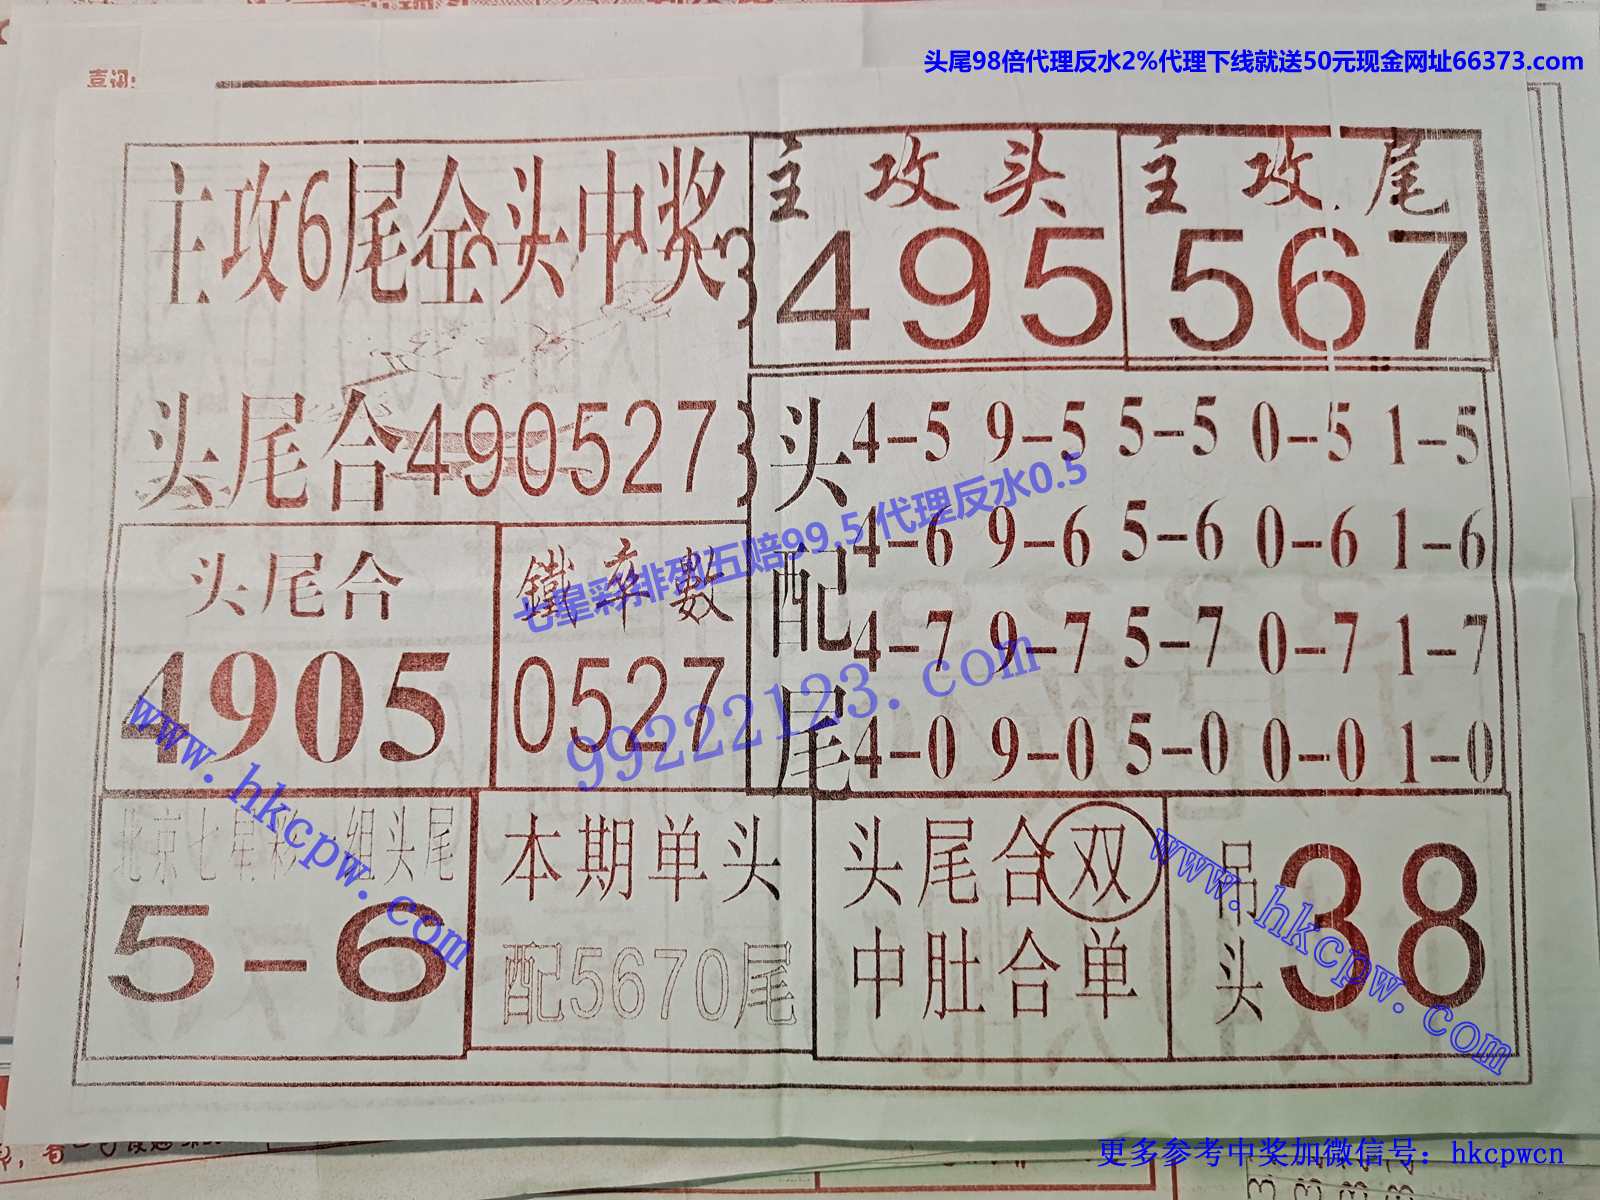 头尾98倍代理反水2%代理下线就送50元现金网址66373.com
主攻6尾全头中奖
头尾合490527
主攻头
495
主攻尾
567
头配尾
4-5 9-5 5-5 0-5 1-5
4-6 9-6 5-6 0-6 1-6
4-7 9-7 5-7 0-7 1-7
4-0 9-0 5-0 0-0 1-0
七星彩排列五赔99.5代理反水0.5
99222123.com
头尾合
4905
鐵率數
0527
www.hkcpw.com
北京七星彩一组头尾
5-6
本期单头
配5670尾
头尾合双
中肚合单
吊头
38
www.hkcpw.com
更多参考中奖加微信号：hkcpwcn